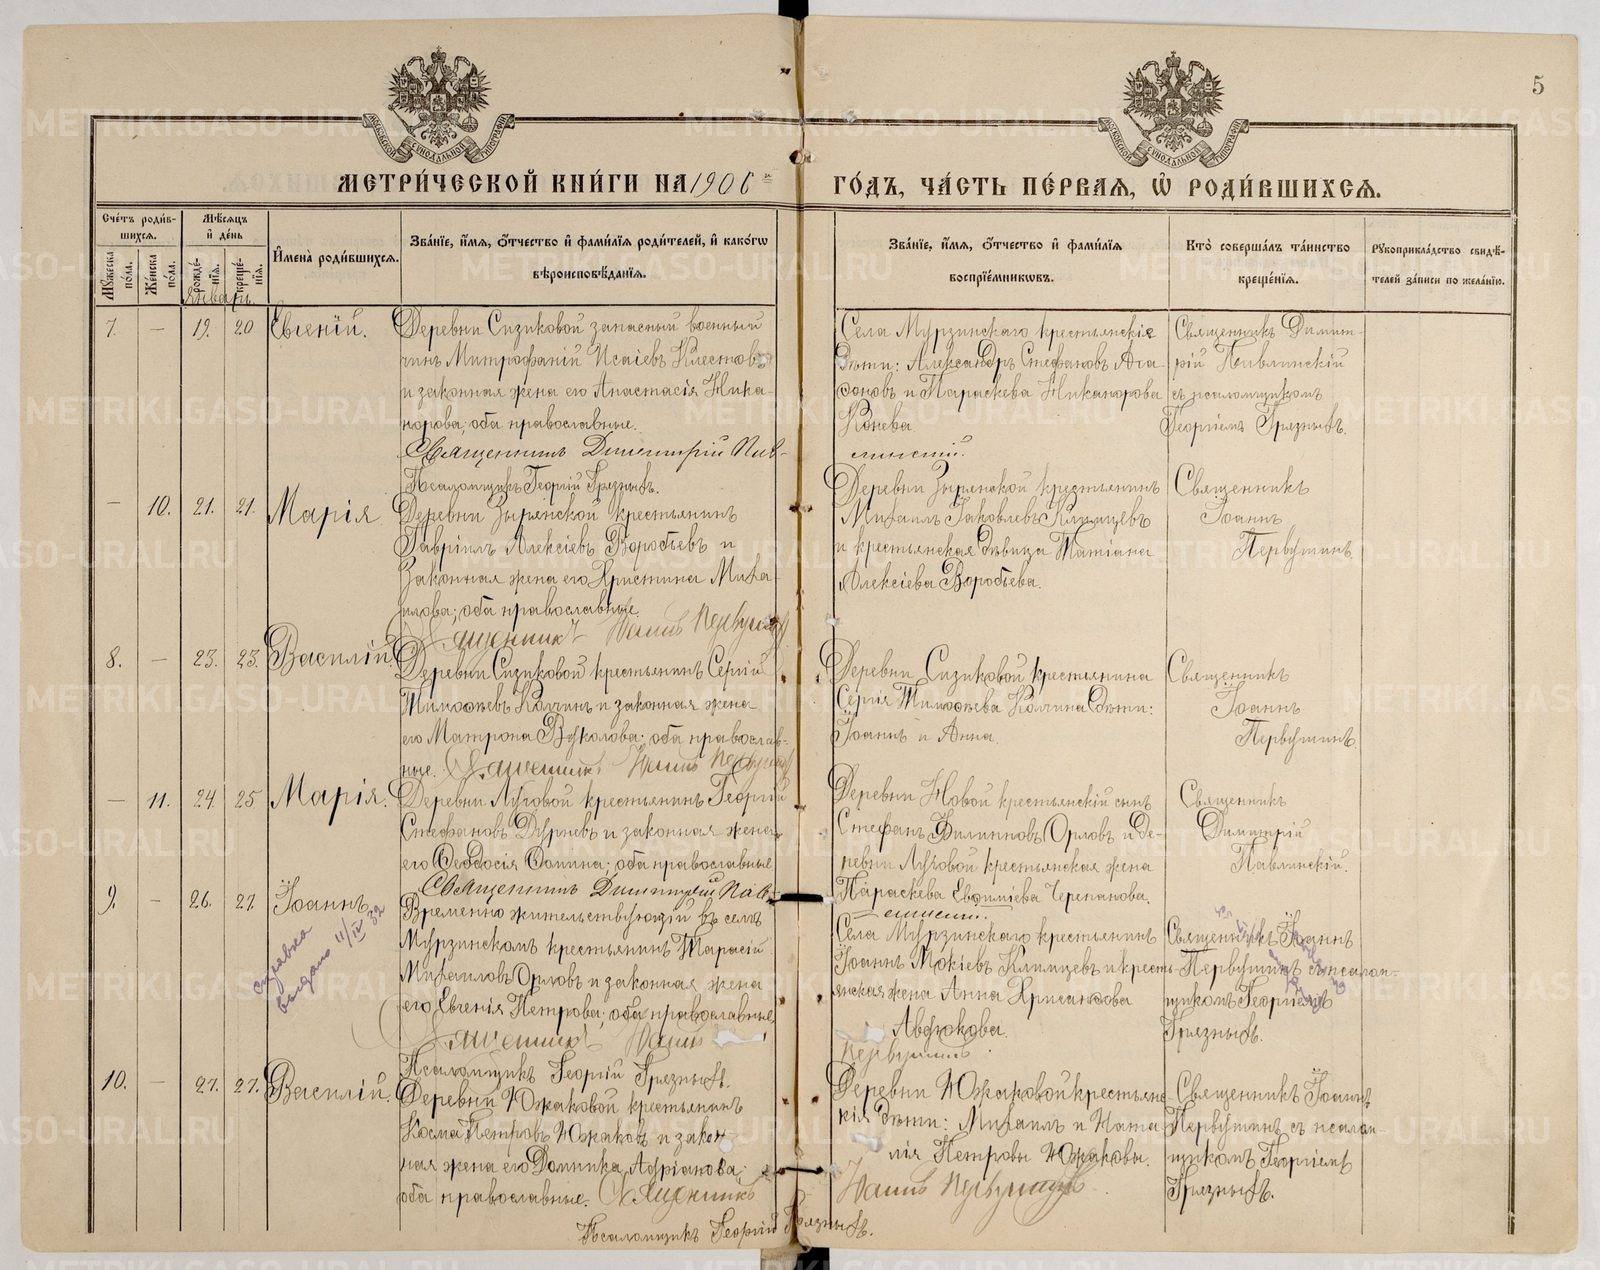 5
МОСКОВСКОЙ СѴНОДАЛЬНОЙ ТИПОГРАФІИ
МОСКОВСКОЙ СѴНОДАЛЬНОЙ ТИПОГРАФІИ
МЕТРИ́ЧЕСКОЙ КНИ́ГИ НА 1906 ГО́ДЪ, ЧА́СТЬ ПЕ́РВАЯ, Ѡ҆ РОДИ́ВШИХСѦ.
Сче́тъ роди́в-
шихсѧ.
Мѣ́сѧцъ
и҆ де́нь
Мꙋ́жеска
по́ла.
Же́нска
по́ла.
рожде́-
нїѧ.
креще́-
нїѧ.
И҆мена̀ роди́вшихсѧ.
Зва́нїе, и҆́мѧ, ѻ҆́тчество и҆ фами́лїѧ роди́телей, и҆ како́гѡ
вѣроисповѣ́данїѧ.
Зва́нїе, и҆́мѧ, ѻ҆́тчество и҆ фами́лїѧ
воспрїе́мникѡвъ.
Кто̀ соверша́лъ та́инство
креще́нїѧ.
Рꙋкоприкла́дство свидѣ́-
телей за́писи по жела́нїю.
Январь.
7. — 19. 20 Евгеній.
Деревни Сизиковой запасный военный
чинъ Митрофаній Исаіевъ Клестовъ
и законная жена его Анастасія Ника-
норова; оба православные.
Священникъ Димитрій Пав-
линскій.
Псаломщикъ Георгій Грязныхъ.
Села Мурзинскаго крестьянскіе
дѣти: Александръ Стефановъ Ага-
фоновъ и Параскева Никанорова
Конева
Священникъ Димит-
рій Павлинскій
съ псаломщикомъ
Георгіемъ Грязныхъ.
— 10. 21. 21. Марія
Деревни Зырянской крестьянинъ
Гавріилъ Алексіевъ Воробьевъ и
законная жена его Христина Миха-
илова; оба православные
Священникъ Іоаннъ Первушинъ
Деревни Зырянской крестьянинъ
Михаилъ Іаковлевъ Климцевъ
и крестьянская дѣвица Татіана
Алексіева Воробьева.
Священникъ
Іоаннъ
Первушинъ
8. — 23. 23. Василій.
Деревни Сизиковой крестьянинъ Сергій
Тимоѳеевъ Колчинъ и законная жена
его Матрона Вуколова; оба православ-
ные. Священникъ Іоаннъ Первушинъ
Деревни Сизиковой крестьянина
Сергія Тимоѳеева Колчина дѣти:
Іоаннъ и Анна.
Священникъ
Іоаннъ
Первушинъ.
— 11. 24. 25 Марія.
Деревни Луговой крестьянинъ Георгій
Стефановъ Дурневъ и законная жена
его Ѳеодосія Ѳомина; оба православные
Священникъ Димитрій Пав-
линскій.
Деревни Новой крестьянскій сынъ
Стефанъ Филипповъ Орловъ и де-
ревни Луговой крестьянская жена
Параскева Евѳиміева Черепанова.
Священникъ
Димитрій
Павлинскій.
9. — 26. 27. Іоаннъ
справка
выдана 11/IV 32
Временно жительствующій въ селѣ
Мурзинскомъ крестьянинъ Тарасій
Михаиловъ Орловъ и законная жена
его Евгенія Петрова; оба православные
Священникъ Іоаннъ
Первушинъ.
Псаломщикъ Георгій Грязныхъ.
Села Мурзинскаго крестьянинъ
Іоаннъ Мокіевъ Климцевъ и кресть-
янская жена Анна Хрисанѳова
Авдюкова.
Священникъ Іоаннъ
Первушинъ съ псалом-
щикомъ Георгіемъ
Грязныхъ.
10. — 27. 27. Василій.
Деревни Южаковой крестьянинъ
Косма Петровъ Южаковъ и закон-
ная жена его Домника Адріанова;
оба православные. Священникъ
Іоаннъ Первушинъ
Псаломщикъ Георгій Грязныхъ.
Деревни Южаковой крестьянс-
кія дѣти: Михаилъ и Ната-
лія Петровы Южаковы.
Священникъ Іоаннъ
Первушинъ съ псалом-
щикомъ Георгіемъ
Грязныхъ.
METRIKI.GASO-URAL.RU